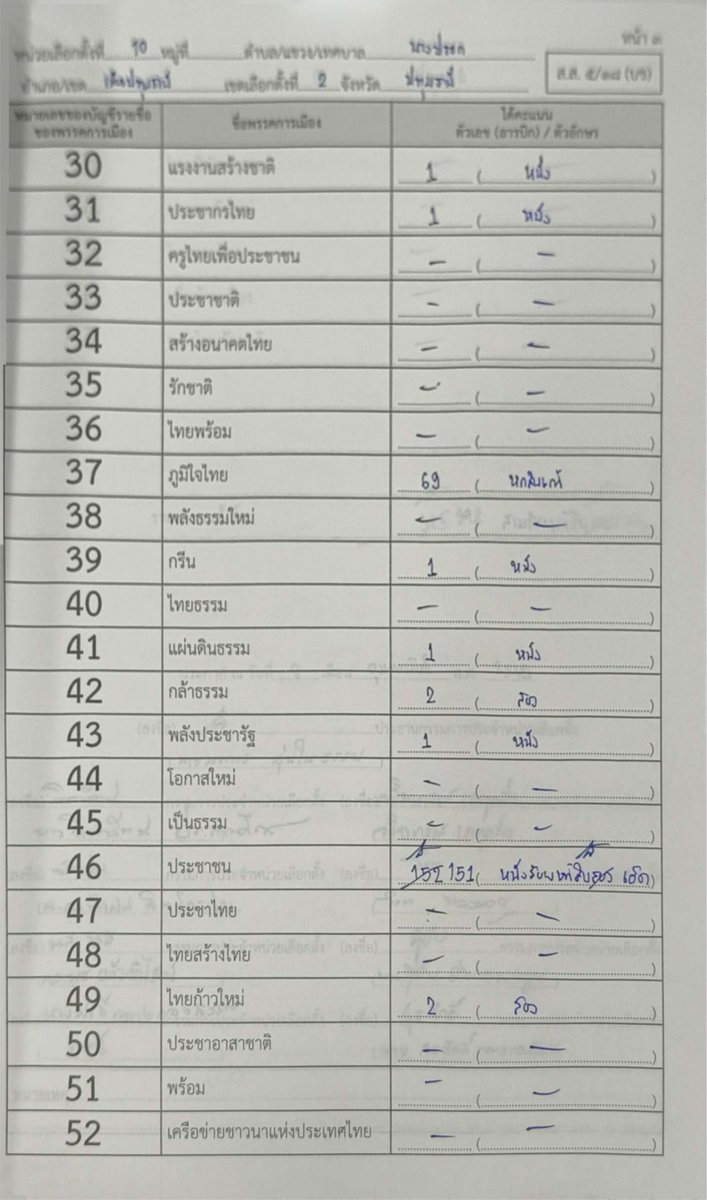 หน้า ๓
หน่วยเลือกตั้งที่ 10 หมู่ที่ ตำบล/แขวง/เทศบาล บางปรอก
ส.ส. ๕/๑๘ (บช)
อำเภอ/เขต เมืองปทุมธานี เขตเลือกตั้งที่ 2 จังหวัด ปทุมธานี
หมายเลขของบัญชีรายชื่อ ชื่อพรรคการเมือง ได้คะแนน
ของพรรคการเมือง ตัวเลข (อารบิก) / ตัวอักษร
30 แรงงานสร้างชาติ 1 ( หนึ่ง )
31 ประชากรไทย 1 ( หนึ่ง )
32 ครูไทยเพื่อประชาชน - ( - )
33 ประชาชาติ - ( - )
34 สร้างอนาคตไทย - ( - )
35 รักชาติ - ( - )
36 ไทยพร้อม - ( - )
37 ภูมิใจไทย 69 ( หกสิบเก้า )
38 พลังธรรมใหม่ - ( - )
39 กรีน 1 ( หนึ่ง )
40 ไทยธรรม - ( - )
41 แผ่นดินธรรม 1 ( หนึ่ง )
42 กล้าธรรม 2 ( สอง )
43 พลังประชารัฐ 1 ( หนึ่ง )
44 โอกาสใหม่ - ( - )
45 เป็นธรรม - ( - )
46 ประชาชน 152 151 ( หนึ่งร้อยห้าสิบสอง เอ็ด )
47 ประชาไทย - ( - )
48 ไทยสร้างไทย - ( - )
49 ไทยก้าวใหม่ 2 ( สอง )
50 ประชาอาสาชาติ - ( - )
51 พร้อม - ( - )
52 เครือข่ายชาวนาแห่งประเทศไทย - ( - )